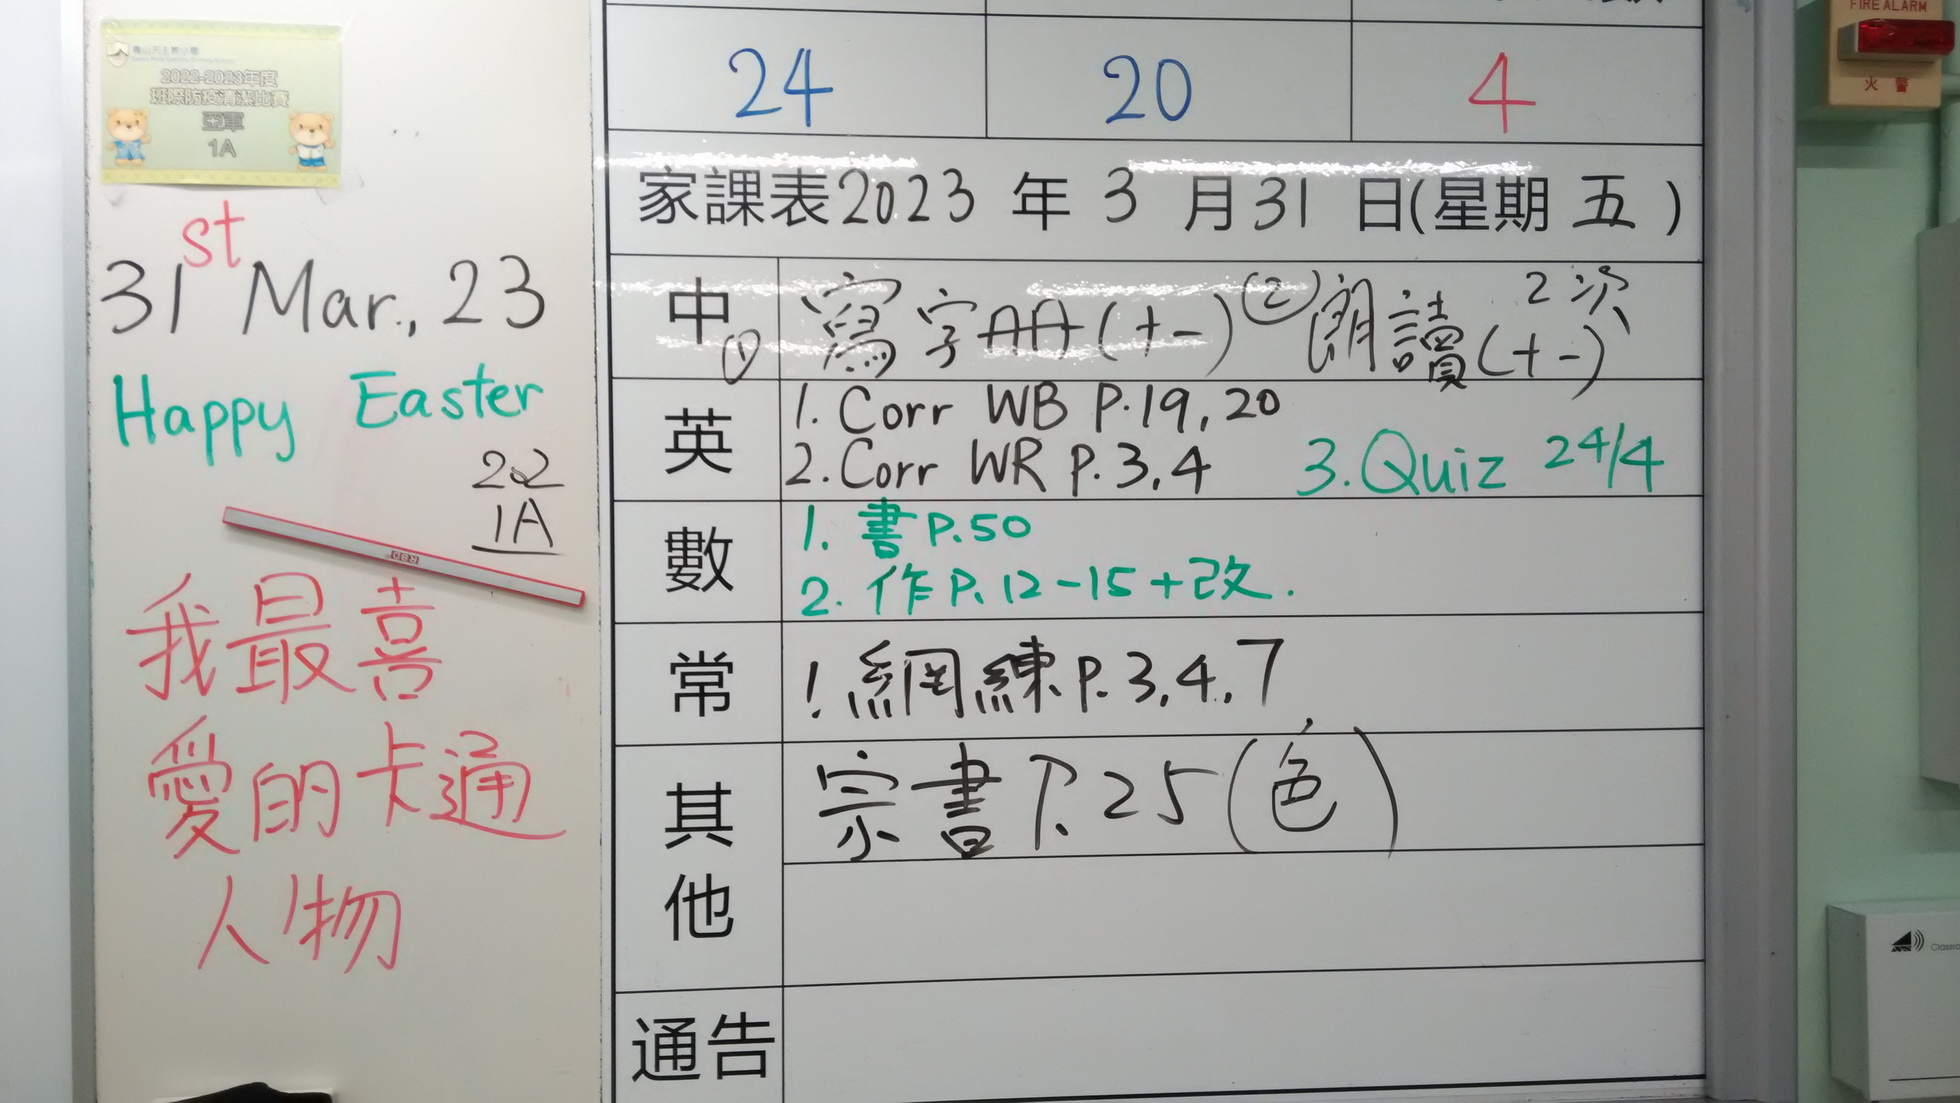 2022-2023年度
班際防疫清潔比賽
亞軍
1A
31st Mar., 23
Happy Easter
22
1A
我最喜
愛的卡通
人物
24 20 4
家課表2023年3月31日(星期五)
中 ①寫字冊(十一) ②朗讀(十一) 2次
英 1. Corr WB P.19, 20
2. Corr WR P.3,4 3. Quiz 24/4
數 1. 書P.50
2. 作P.12-15+改.
常 1. 網練P.3,4,7
其他 宗書P.25(色)
通告
FIRE ALARM
火警